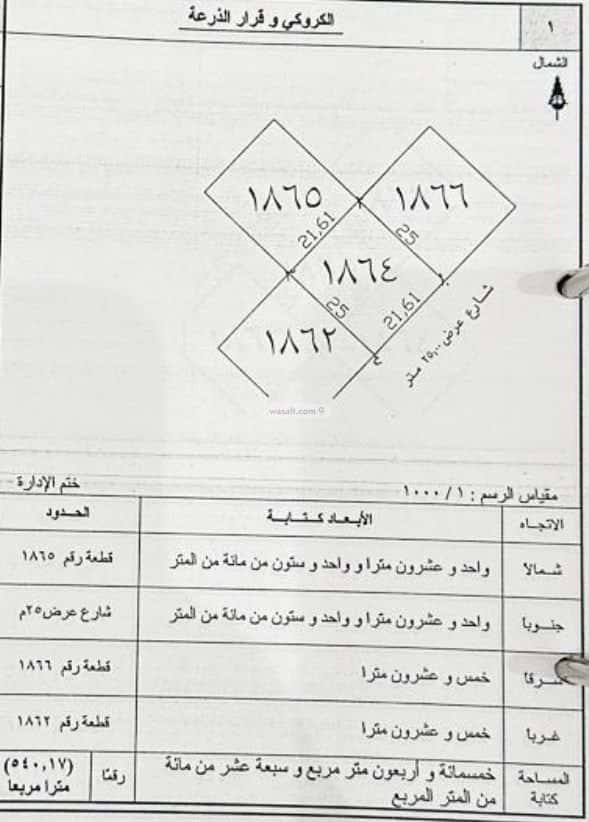 ١
الكروكي و قرار الذرعة
الشمال
١٨٦٥
١٨٦٦
21,61
25
١٨٦٤
25
21,61
١٨٦٢
شارع عرض ٢٥,٠٠ متر
wasalt.com
مقياس الرسم : ١ / ١٠٠٠
ختم الإدارة
الاتجاه الأبعاد كتابة الحدود
شمالا واحد و عشرون مترا و واحد و ستون من مائة من المتر قطعة رقم ١٨٦٥
جنوبا واحد و عشرون مترا و واحد و ستون من مائة من المتر شارع عرض ٢٥م
شرقا خمس و عشرون مترا قطعة رقم ١٨٦٦
غربا خمس و عشرون مترا قطعة رقم ١٨٦٢
المساحة كتابة خمسمائة و أربعون متر مربع و سبعة عشر من مائة من المتر المربع رقمًا (٥٤٠,١٧) مترا مربعا